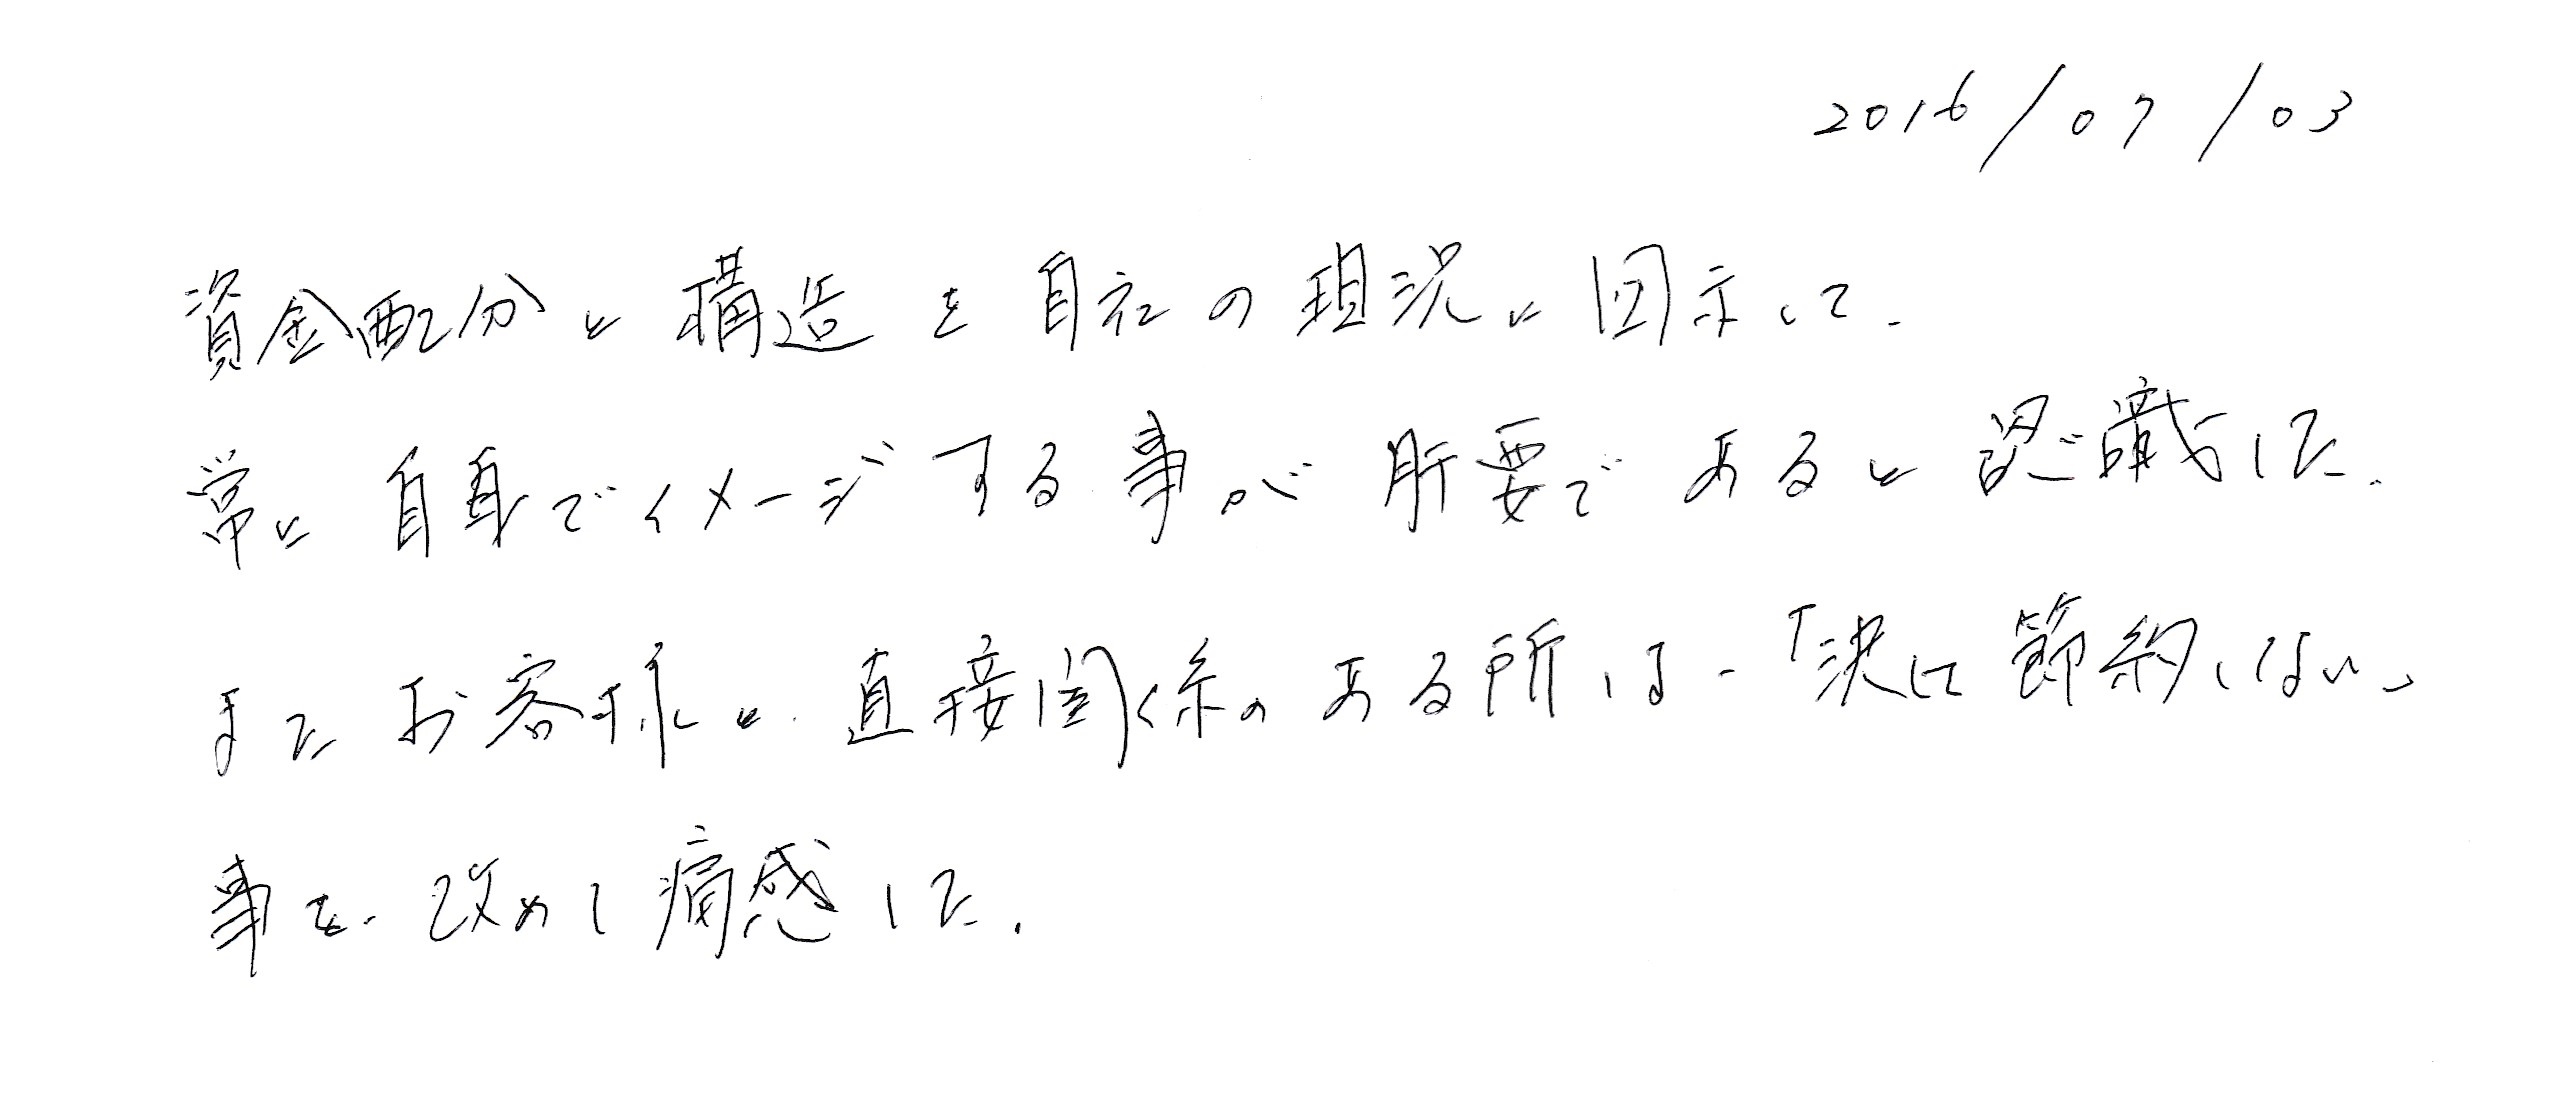 2016/07/03
資金配分と構造を自社の現況に図示して、
常に自身でイメージする事が肝要であると認識した。
またお客様と直接関係のある所は、「決して節約しない」
事を、改めて痛感した。